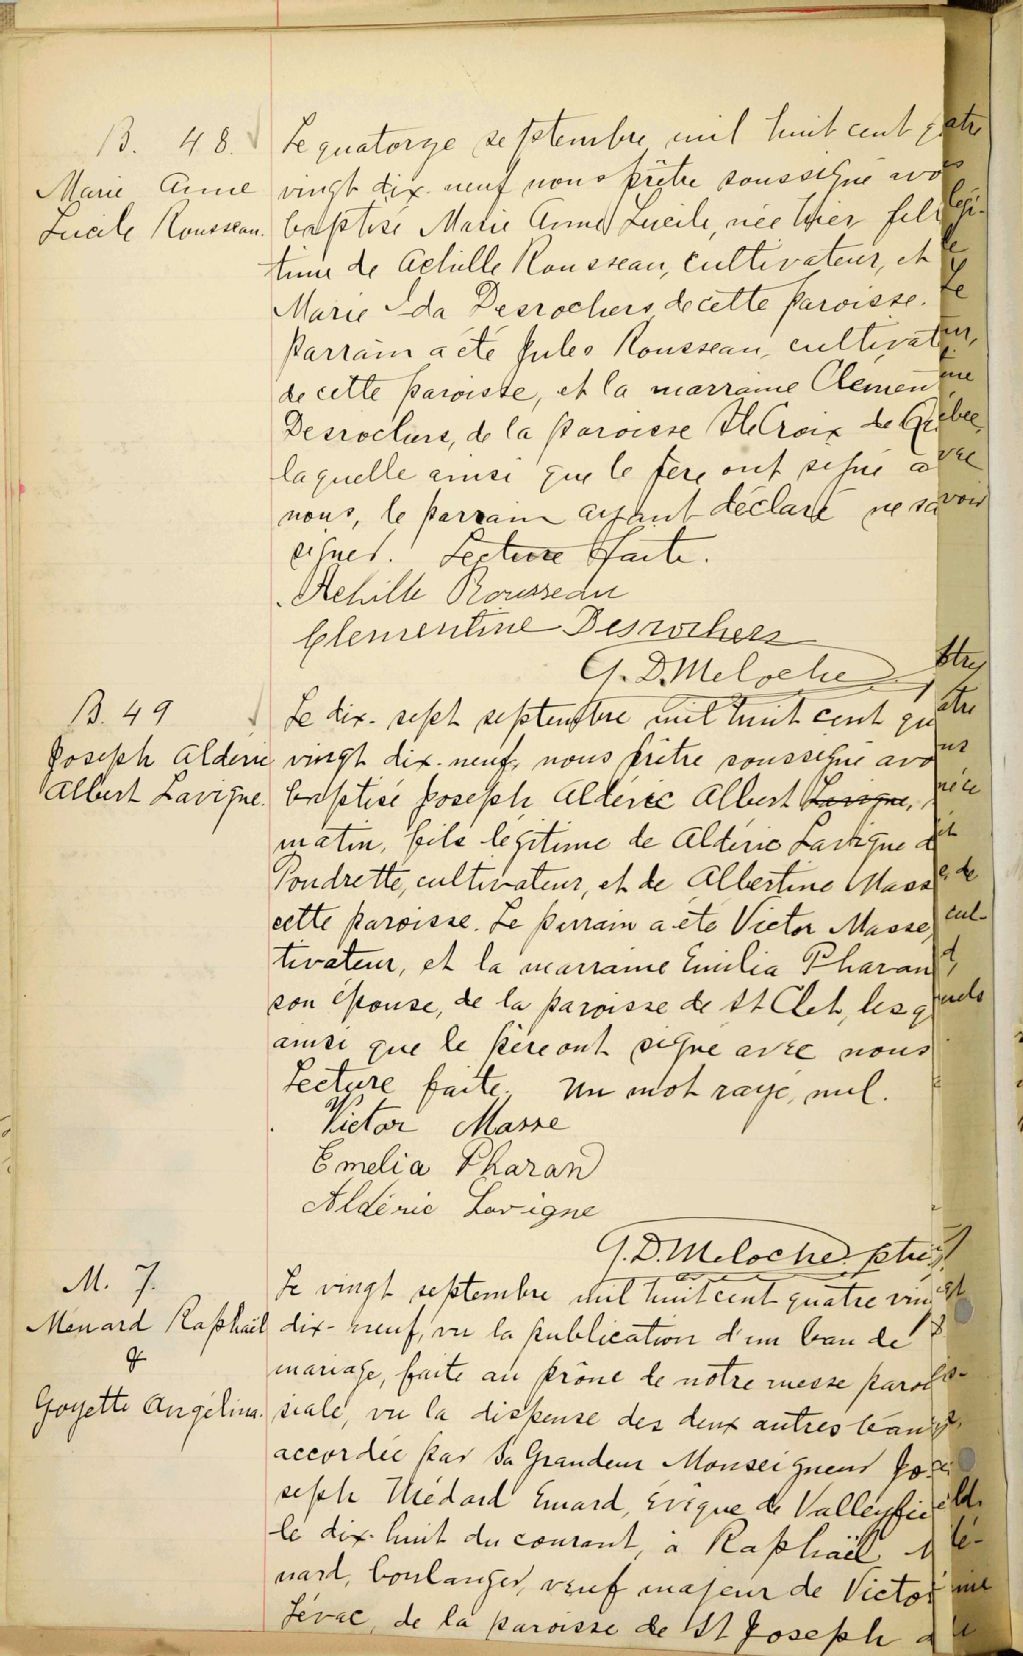 B. 48.
Marie Anne
Lucile Rousseau.
Le quatorze septembre mil huit cent quatre
vingt dix-neuf nous prêtre soussigné avons
baptisé Marie Anne Lucile, née hier fille légi-
time de Achille Rousseau, cultivateur, et de
Marie Ida Desrochers, de cette paroisse. Le
parrain a été Jules Rousseau, cultivateur,
de cette paroisse, et la marraine Clémentine
Desrochers, de la paroisse Ste Croix de Québec,
laquelle ainsi que le père ont signé avec
nous, le parrain ayant déclaré ne savoir
signer. Lecture faite.
Achille Rousseau
Clementine Desrochers
G. D. Meloche ptre
B. 49
Joseph Aldéric
Albert Lavigne.
Le dix-sept septembre mil huit cent quatre
vingt dix-neuf, nous prêtre soussigné avons
baptisé Joseph Aldéric Albert Lavigne, né ce
matin, fils légitime de Aldéric Lavigne dit
Poudrette, cultivateur, et de Albertine Masse, de
cette paroisse. Le parrain a été Victor Masse, cul-
tivateur, et la marraine Emilia Pharand,
son épouse, de la paroisse de St Clet, lesquels
ainsi que le père ont signé avec nous
Lecture faite. Un mot rayé, nul.
Victor Masse
Emelia Pharand
Aldéric Lavigne
G. D. Meloche ptre
M. 7.
Menard Raphaël
&
Goyette Angélina.
Le vingt septembre mil huit cent quatre vingt
dix-neuf, vu la publication d'un ban de
mariage, faite au prône de notre messe parois-
siale, vu la dispense des deux autres bans,
accordée par Sa Grandeur Monseigneur Jo-
seph Médard Emard, Évêque de Valleyfield,
le dix-huit du courant, à Raphaël Mé-
nard, boulanger, veuf majeur de Victorine
Lévac, de la paroisse de St Joseph de